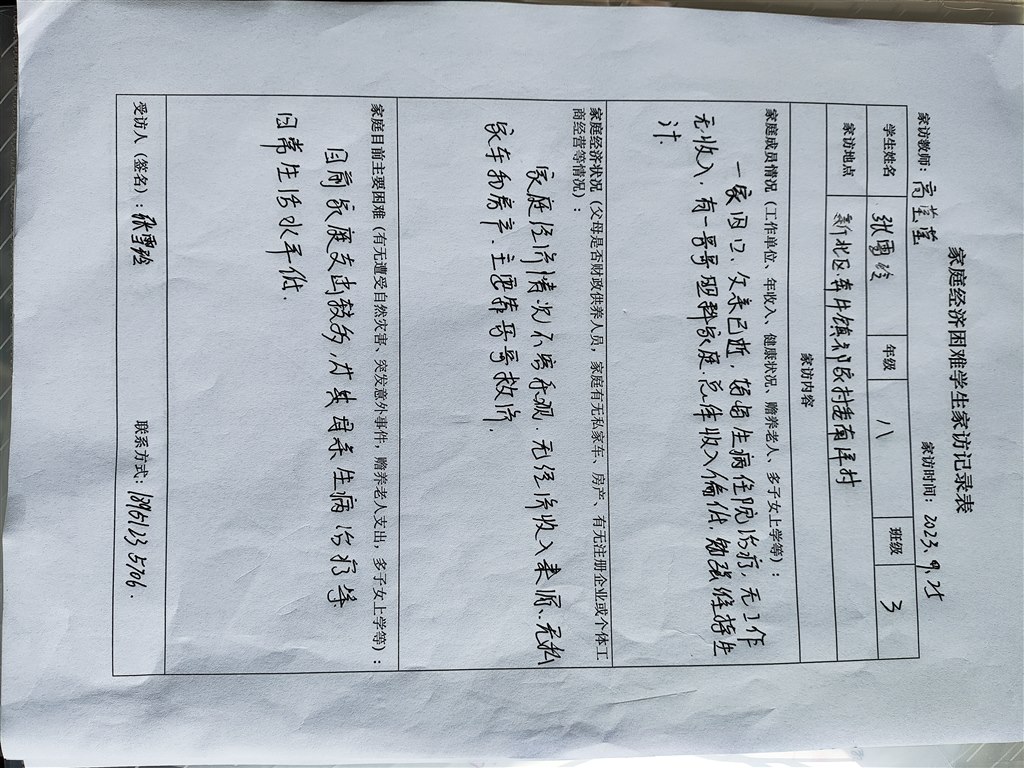 家庭经济困难学生家访记录表
家访教师：高莹莹 家访时间：2023.9.25
学生姓名 张雪玲 年级 八 班级 3
家访地点 新北区 村委南洋村
家访内容
家庭成员情况（工作单位、年收入、健康状况、赡养老人、多子女上学等）：
一家四口，父亲已逝，妈妈生病住院治疗，无工作
无收入，有一哥哥照料家庭，总体收入偏低，勉强维持生
计.
家庭经济状况（父母是否财政供养人员，家庭有无私家车、房产、有无注册企业或个体工
商经营等情况）：
家庭经济情况不容乐观，无经济收入来源、无私
家车和房产，主要靠哥哥救济.
家庭目前主要困难（有无遭受自然灾害、突发意外事件，赡养老人支出，多子女上学等）：
目前家庭支出较多，尤其母亲生病治疗等
日常生活水平低.
受访人（签名）：张雪玲 联系方式：18961235706.